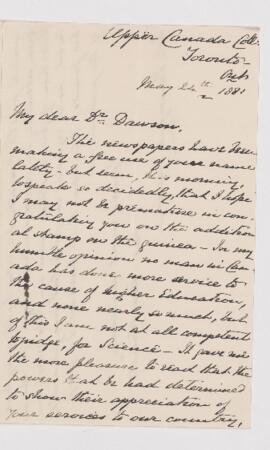 Upper Canada Coll.
Toronto-
Ont
May 24th 1881
My dear Dr. Dawson,
The newspapers have been
making a free use of your name
lately - but seem, this morning,
to speak so decidedly, that I hope
I may not be premature in con-
gratulating you on the addition-
al stamp on the guinea - In my
humble opinion no man in Can-
ada has done more service to
the cause of Higher Education,
and none nearly so much, but
of this I am not at all competent
to judge, for Science - It gave me
the more pleasure to read that the
powers that be had determined
to show their appreciation of
your services to our country,